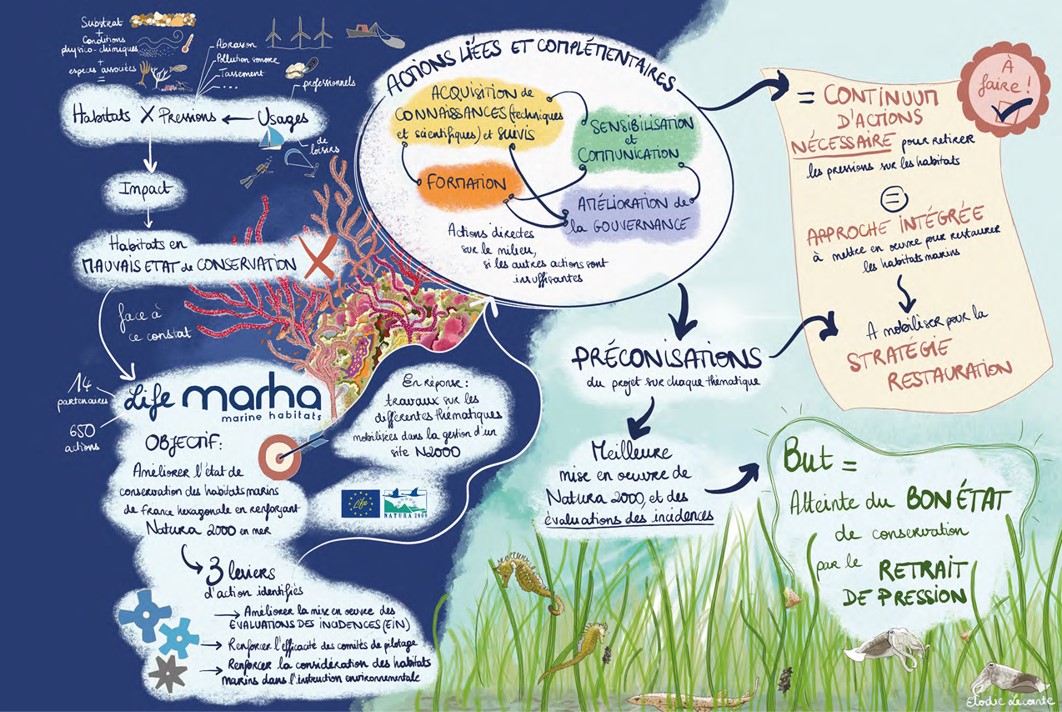 Substrat
+
Conditions
physico-chimiques
+
espèces associées
=
Abrasion
Pollution sonore
Tassement
...
professionnels
Habitats X Pressions ← Usages
de
loisirs
Impact
Habitats en
MAUVAIS ETAT de CONSERVATION
face à
ce constat
14
partenaires
650
actions
Life marha
marine habitats
OBJECTIF:
Améliorer l'état de
conservation des habitats marins
de France hexagonale en renforçant
Natura 2000 en mer
3 leviers
d'action identifiés
→ Améliorer la mise en oeuvre des
EVALUATIONS DES INCIDENCES (EIN)
→ Renforcer l'efficacité des comités de pilotage
→ Renforcer la considération des habitats
marins dans l'instruction environnementale
En réponse:
travaux sur les
différentes thématiques
mobilisées dans la gestion d'un
site N2000
Life
NATURA 2000
ACTIONS LIÉES ET COMPLÉMENTAIRES
ACQUISITION de
CONNAISSANCES (techniques
et scientifiques) et SUIVIS
SENSIBILISATION
et
COMMUNICATION
FORMATION
AMÉLIORATION de
la GOUVERNANCE
Actions directes
sur le milieu,
si les autres actions sont
insuffisantes
PRÉCONISATIONS
du projet sur chaque thématique
Meilleure
mise en oeuvre de
Natura 2000, et des
évaluations des incidences
À
faire!
= CONTINUUM
D'ACTIONS
NÉCESSAIRE pour retirer
les pressions sur les habitats
=
APPROCHE INTÉGRÉE
à mettre en oeuvre pour restaurer
les habitats marins
A mobiliser pour la
STRATÉGIE
RESTAURATION
But =
Atteinte du BON ÉTAT
de conservation
par le RETRAIT
DE PRESSION
Elodie Lecointe